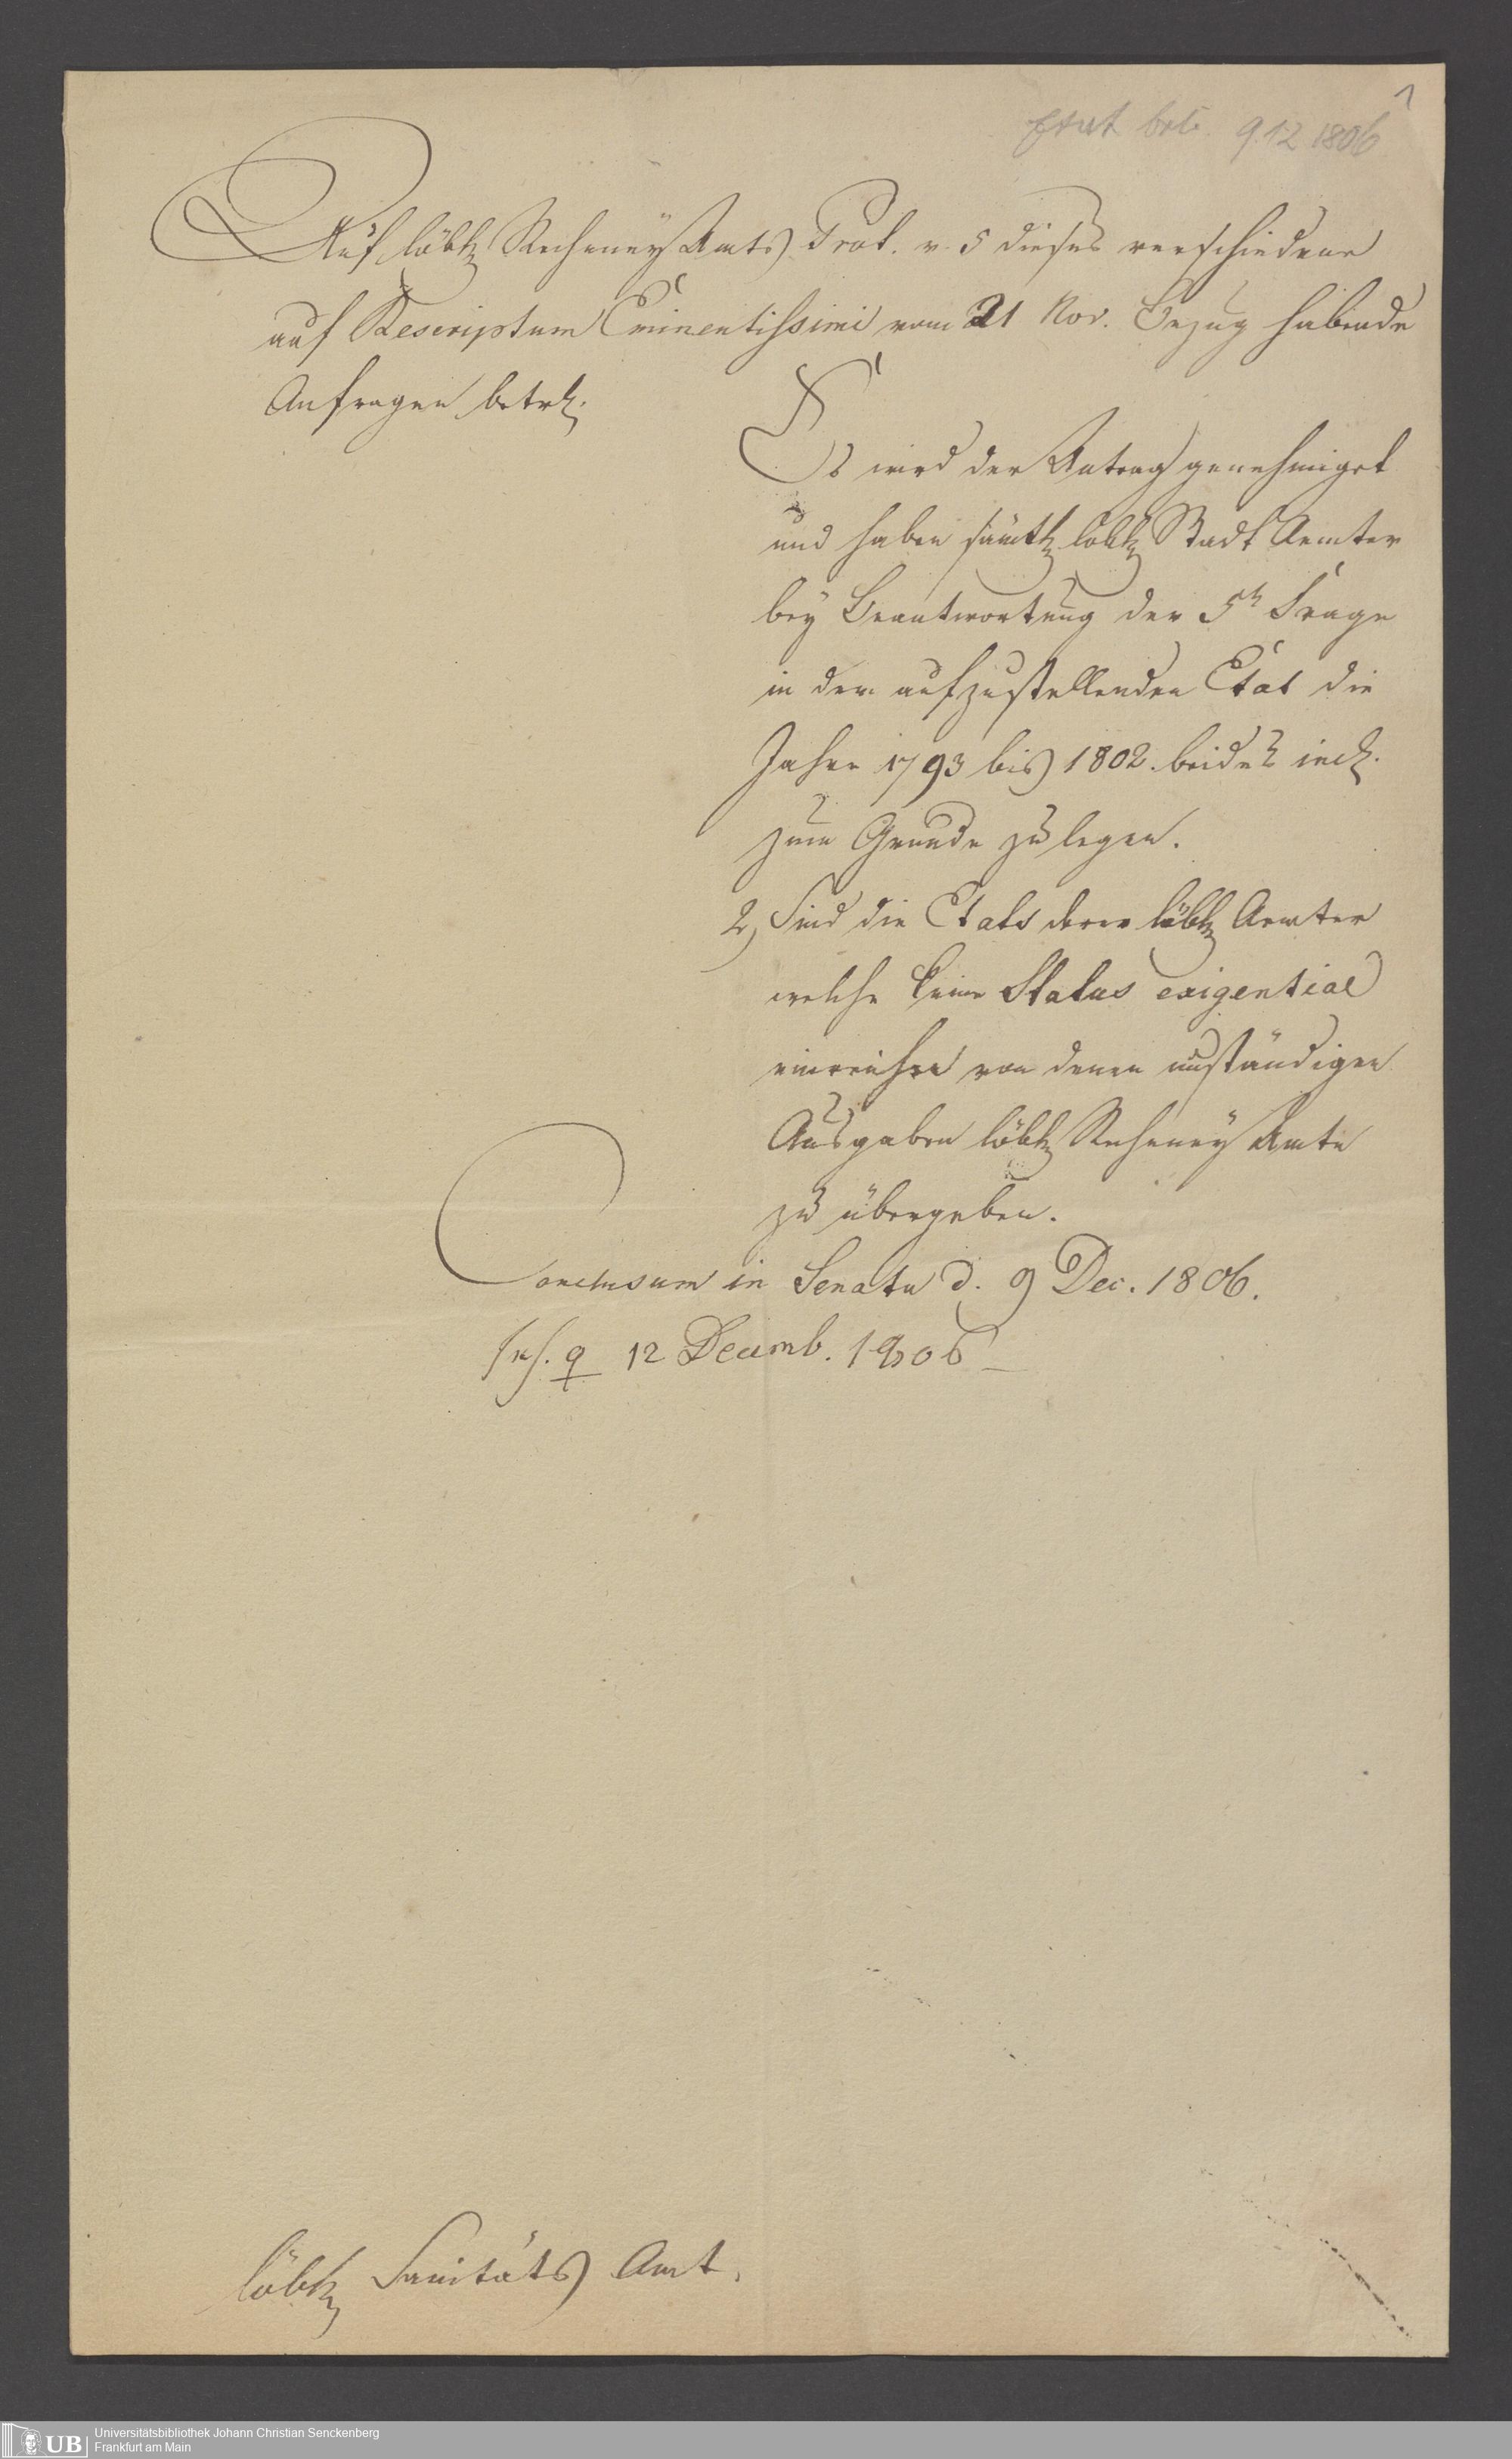 1
Etat betr. 9.12 1806
Auf löbl. Recheney Amts Prot. v. 5 dieses verschiedene
auf Rescriptum Eminentissimi vom 21 Nov. Bezug habende
Anfragen betrl.
Es wird der Antrag genehmiget
und haben sämtl. löbl. Stadt Aemter
bey Beantwortung der 5n Frage
in dem aufzustellenden Etat die
Jahre 1793 bis 1802. beides incl.
zum Grunde zu legen.
2, Sind die Etats derer löbl. Aemter
welche keine Status exigentiae
einreichen von denen
Ausgaben löbl. Recheney Amte
zu übergeben.
Conclusum in Senatu d. 9 Dec. 1806.
12 Decemb. 1806
löbl. Sanitäts Amt.
UB
Universitätsbibliothek Johann Christian Senckenberg
Frankfurt am Main